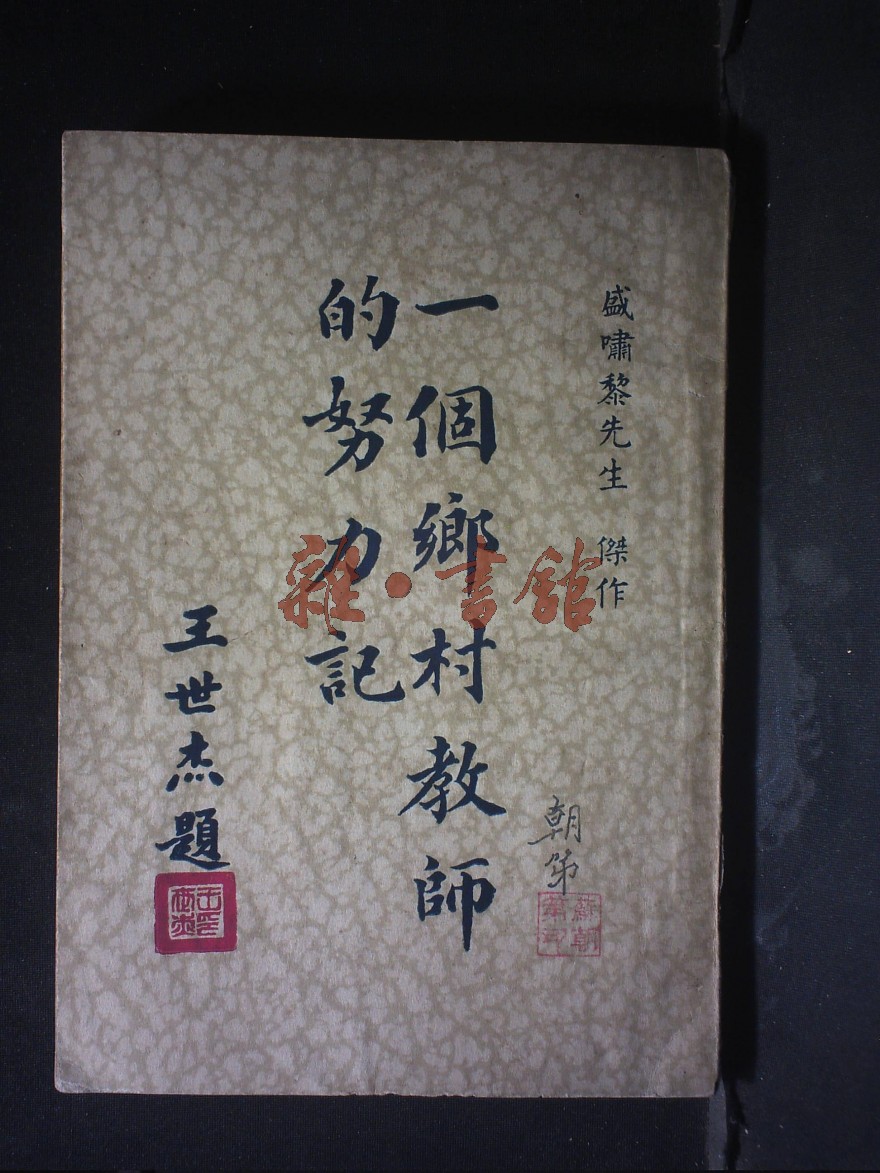 盛嘯黎先生 傑作
一個鄉村教師
的努力記
王世杰題
朝第
雜·書館